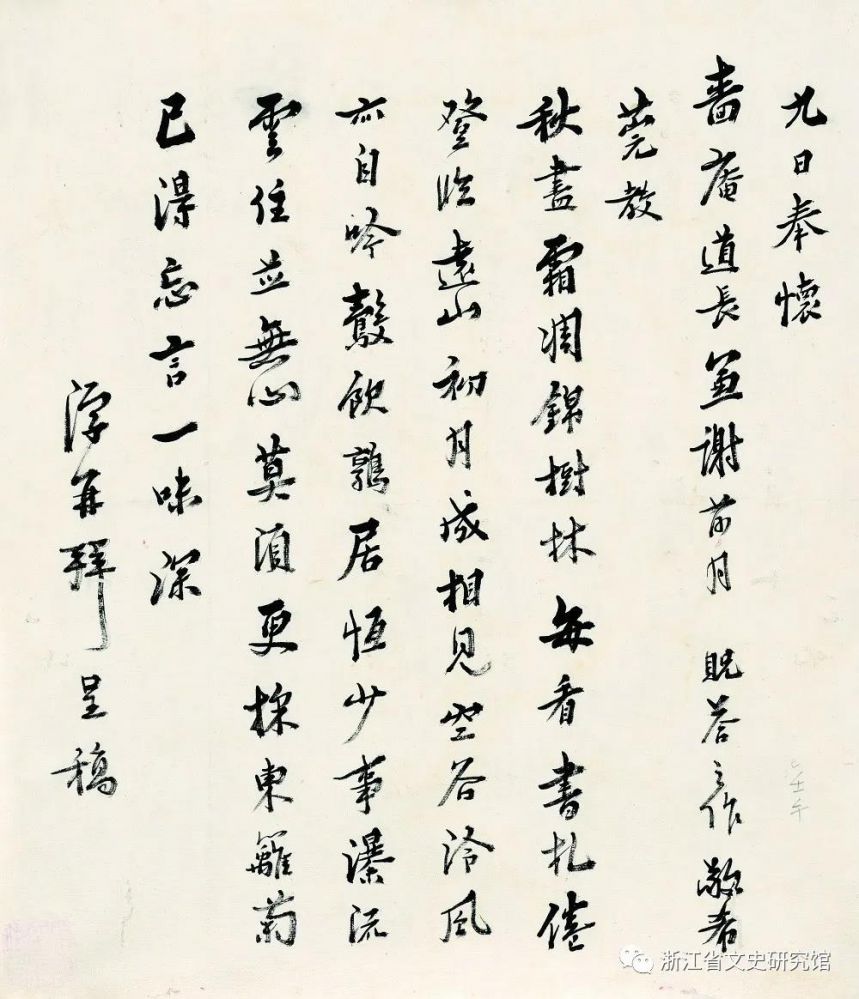 九日奉懷
嗇庵道長兼謝前月 貺答之作敬希
莞教
秋盡霜凋錦樹林每看書札倦
登臨遠山初月成相見空谷泠風
亦自吟鷇飲鶉居恒少事瀑流
雲住並無心莫須更採東籬菊
已得忘言一味深
浮再拜呈稿
壬午
浙江省文史研究馆